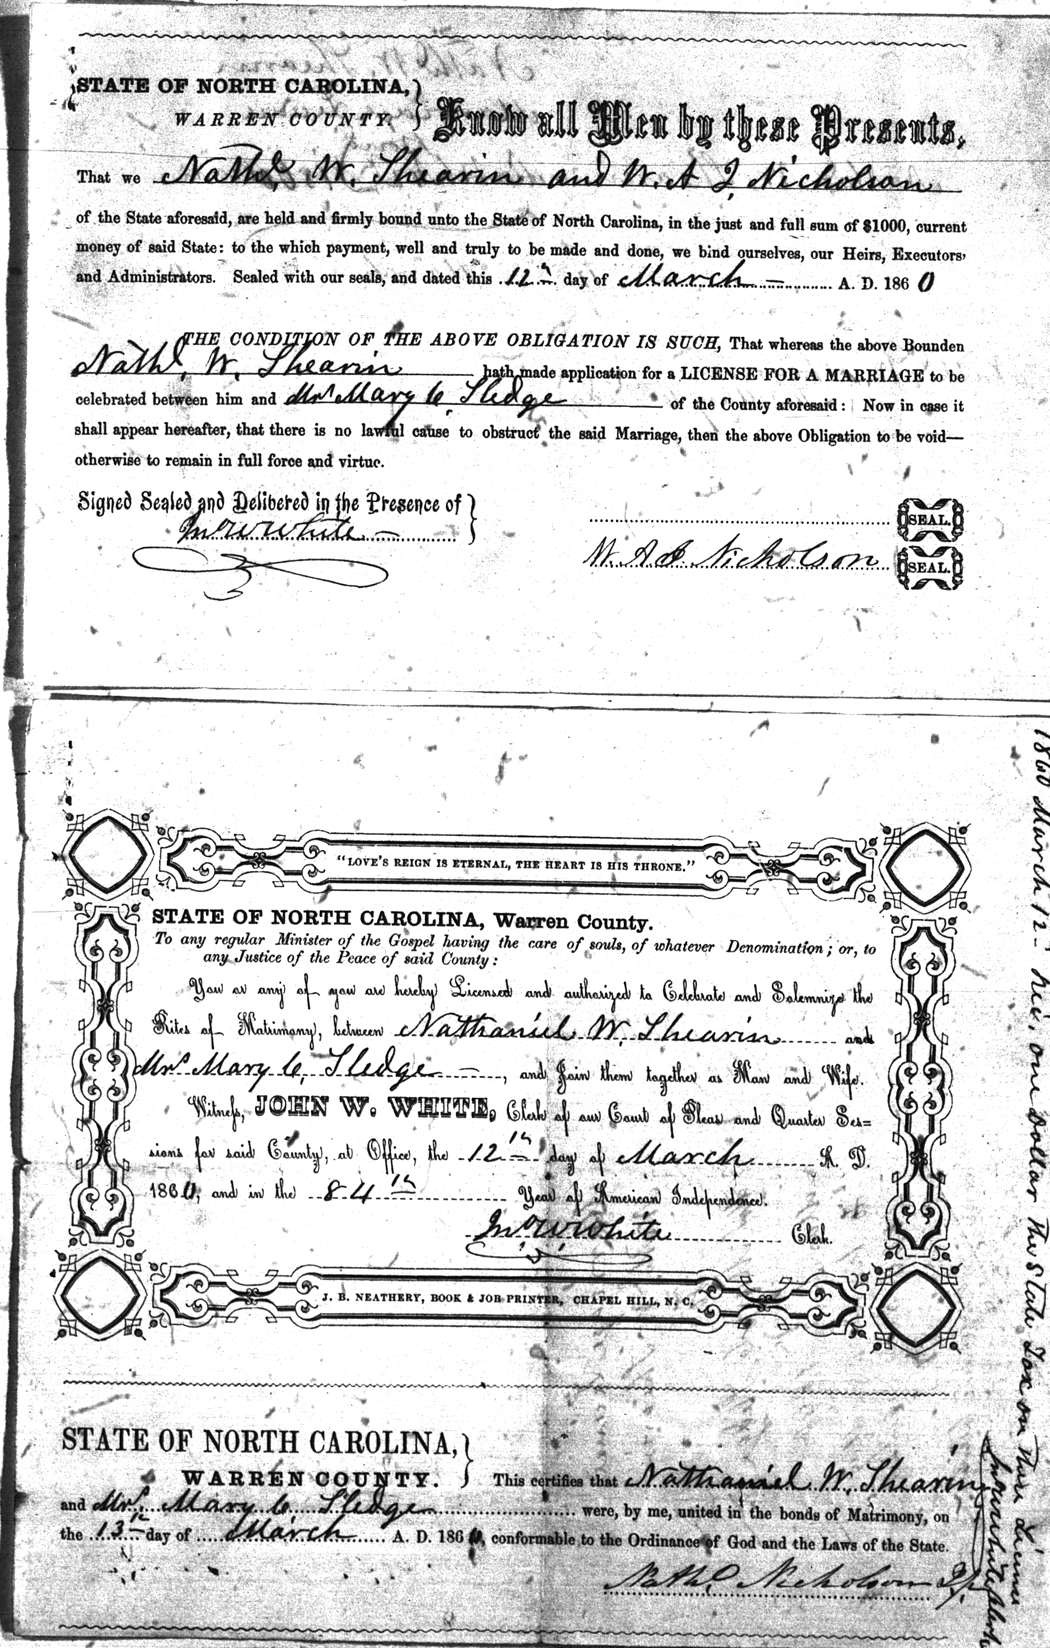 STATE OF NORTH CAROLINA,
WARREN COUNTY.
Know all Men by these Presents,
That we Nathl. W. Shearin and W. A. J. Nicholson
of the State aforesaid, are held and firmly bound unto the State of North Carolina, in the just and full sum of $1000, current
money of said State: to the which payment, well and truly to be made and done, we bind ourselves, our Heirs, Executors,
and Administrators. Sealed with our seals, and dated this 12th day of March A. D. 1860
THE CONDITION OF THE ABOVE OBLIGATION IS SUCH, That whereas the above Bounden
Nathl. W. Shearin hath made application for a LICENSE FOR A MARRIAGE to be
celebrated between him and Mrs Mary C. Sledge of the County aforesaid: Now in case it
shall appear hereafter, that there is no lawful cause to obstruct the said Marriage, then the above Obligation to be void—
otherwise to remain in full force and virtue.
Signed Sealed and Delivered in the Presence of
SEAL.
Jno W White
W. A. J. Nicholson
SEAL.
"LOVE'S REIGN IS ETERNAL, THE HEART IS HIS THRONE."
STATE OF NORTH CAROLINA, Warren County.
To any regular Minister of the Gospel having the care of souls, of whatever Denomination; or, to
any Justice of the Peace of said County:
You or any of you are hereby Licensed and authorized to Celebrate and Solemnize the
Rites of Matrimony, between Nathaniel W. Shearin and
Mrs Mary C. Sledge, and Join them together as Man and Wife.
Witness, JOHN W. WHITE, Clerk of our Court of Pleas and Quarter Ses=
sions for said County, at Office, the 12th day of March A. D.
1860, and in the 84th Year of American Independence.
Jno W White Clerk.
J. B. NEATHERY, BOOK & JOB PRINTER, CHAPEL HILL, N. C.
STATE OF NORTH CAROLINA,
WARREN COUNTY.
This certifies that Nathaniel W. Shearin
and Mrs. Mary C Sledge were, by me, united in the bonds of Matrimony, on
the 13th day of March A. D. 1860, conformable to the Ordinance of God and the Laws of the State.
Nathl Nicholson J.P.
1860 March 12th Rec. one Dollar the State Tax on this License
Jno W White Clerk